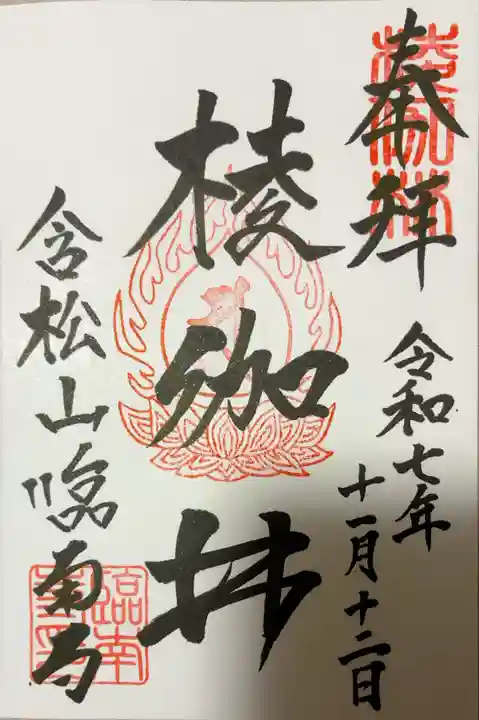 奉拝
令和七年
十一月十二日
棱伽林
含松山臨南寺
臨南